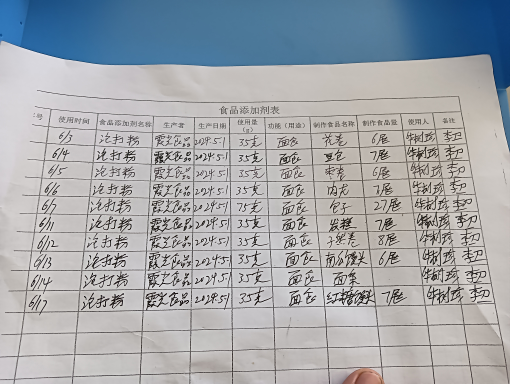 食品添加剂表
号 使用时间 食品添加剂名称 生产者 生产日期 使用量(g) 功能（用途） 制作食品名称 制作食品量 使用人 备注
6/3 泡打粉 霞光食品 2024.5.1 35克 面食 花卷 6层
6/4 泡打粉 霞光食品 2024.5.1 35克 面食 豆包 7层
6/5 泡打粉 霞光食品 2024.5.1 35克 面食 6层
6/6 泡打粉 霞光食品 2024.5.1 35克 面食 肉龙 7层
6/7 泡打粉 霞光食品 2024.5.1 75克 面食 包子 27层
6/11 泡打粉 霞光食品 2024.5.1 35克 面食 发糕 7层
6/12 泡打粉 霞光食品 2024.5.1 35克 面食 8层
6/13 泡打粉 霞光食品 2024.5.1 35克 面食 南瓜馒头 6层
6/14 泡打粉 霞光食品 2024.5.1 35克 面食 面条
6/17 泡打粉 霞光食品 2024.5.1 35克 面食 红糖馒头 7层